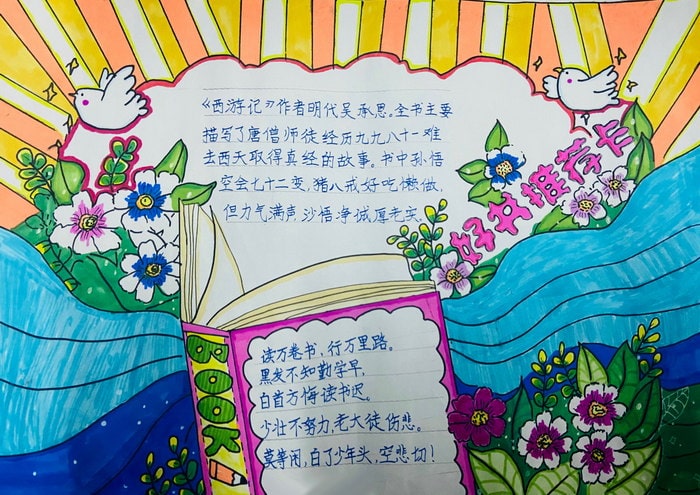 《西游记》作者明代吴承恩。全书主要
描写了唐僧师徒经历九九八十一难
去西天取得真经的故事。书中孙悟
空会七十二变，猪八戒好吃懒做，
但力气满声，沙悟净诚厚老实
好书推荐卡
BOOK
读万卷书，行万里路。
黑发不知勤学早，
白首方悔读书迟。
少壮不努力，老大徒伤悲。
莫等闲，白了少年头，空悲切！